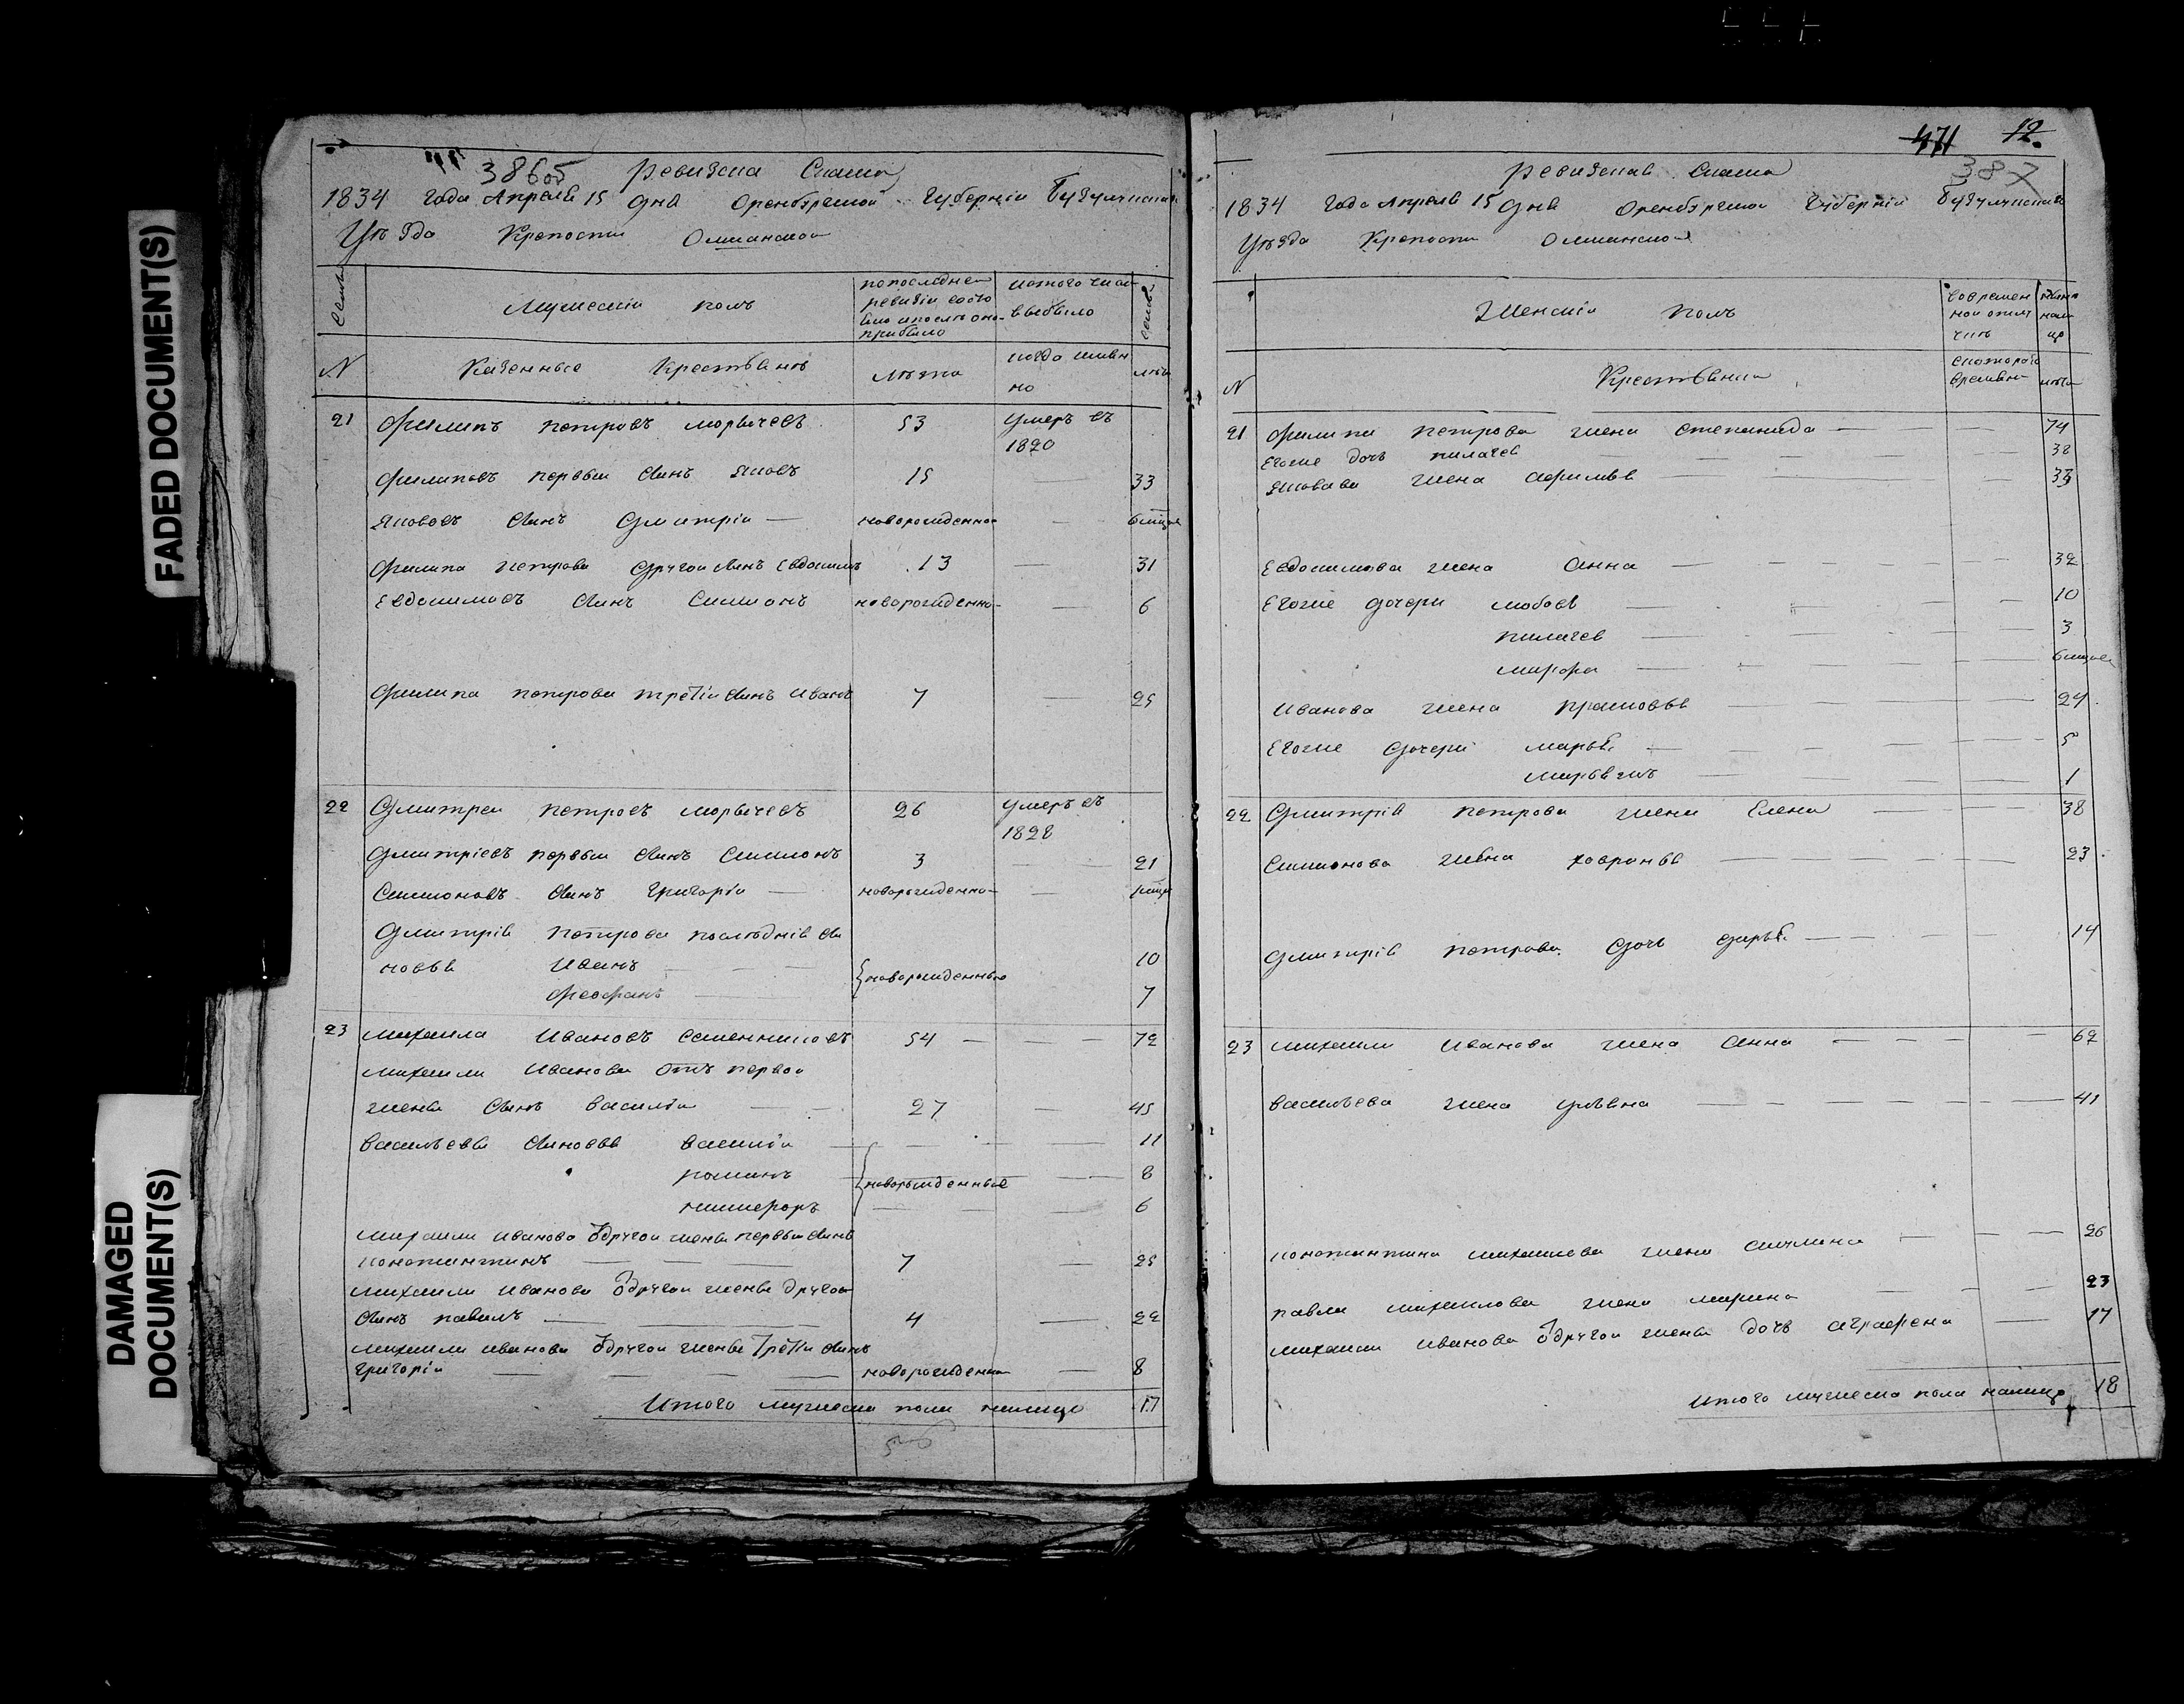 FADED DOCUMENT(S)
DAMAGED
DOCUMENT(S)
386об Ревизска Сказка
1834 года Апреля 15 дня Оренбургской Губернии Бугульминскаго
Уѣзда Крепости
Мужескій полъ
по последней
ревизіи состо
прибыло
изтого числа
выбыло
N Казенные Крестьянѣ
лѣта
когда имян
но
лѣта
21 Филипъ петровъ 53 умеръ въ
1820
Филиповъ первыи сынъ Яковъ 15 33
Яковъвъ сынъ Дмитріи новорожденнои 6 мцов
Филипа петрова другои сынъ Евдокимъ 13 31
Евдокимовъ сынъ Симионъ новорожденно 6
Филипа петрова третіи сынъ иванъ 7 25
22 Дмитреи петровъ 26 умеръ въ
1828
Дмитріевъ первыи сынъ Симионъ 3 21
Симионовъ сынъ григоріи новорожденно
Дмитрія петрова послѣднія сы
новья Иванъ 10
новорожденные
Феофанъ 7
23 михаила Ивановъ 54 72
михаили Иванова отъ первои
жены сынъ Василіи 27 45
Васильевы сыновья василіи 11
романъ новорожденные 8
никифоръ 6
михаили иванова одругои жены первыи сынъ
константинъ 7 25
михаили иванова одругои жены другои
сынъ павилъ 4 22
михаили иванова одругои жены третіи сынъ
григоріи новорожденнои 8
Итого мужеска пола налицо 17
471 12.
387
Ревизская Сказка
1834 года Апреля 15 дня Оренбургской Губерніи Бугульминскаго
Уѣзда Крепости
Женскій полъ
N Крестьянки
лѣта
21 Филипа петрова жена степанида 74
Егоже дочь пилагея 38
Яковава жена афимья 33
Евдокимова жена Анна 32
Егоже дочери любовь 10
пилагея 3
марфа 6 мцов
Иванова жена прасковья 24
Егоже дочери марья 5
1
22 Дмитрія петрова жена Елена 38
Симионова жена хавронья 23
Дмитрія петрова дочь дарья 14
23 михаили Иванова жена Анна 62
Васильева жена ульяна 41
константина михаилова жена 26
павла михаилова жена марина 23
михаили иванова одругои жены дочь аграфена 17
итого мужеска пола налицо 18